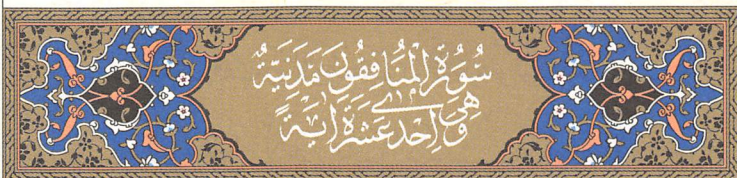 سُورَةُ الْمُنَافِقُونَ مَدَنِيَّةٌ
وَهِيَ اِحْدٰى عَشْرَةَ اٰيَةً